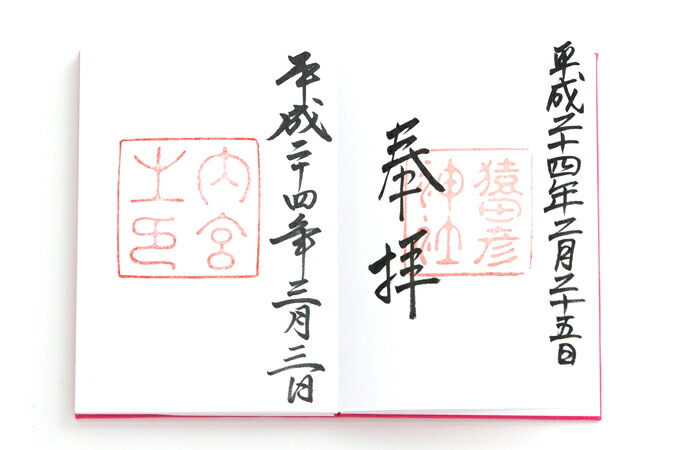 平成二十四年二月二十五日
奉拝
猿田彦神社
平成二十四年三月三日
内宮之印